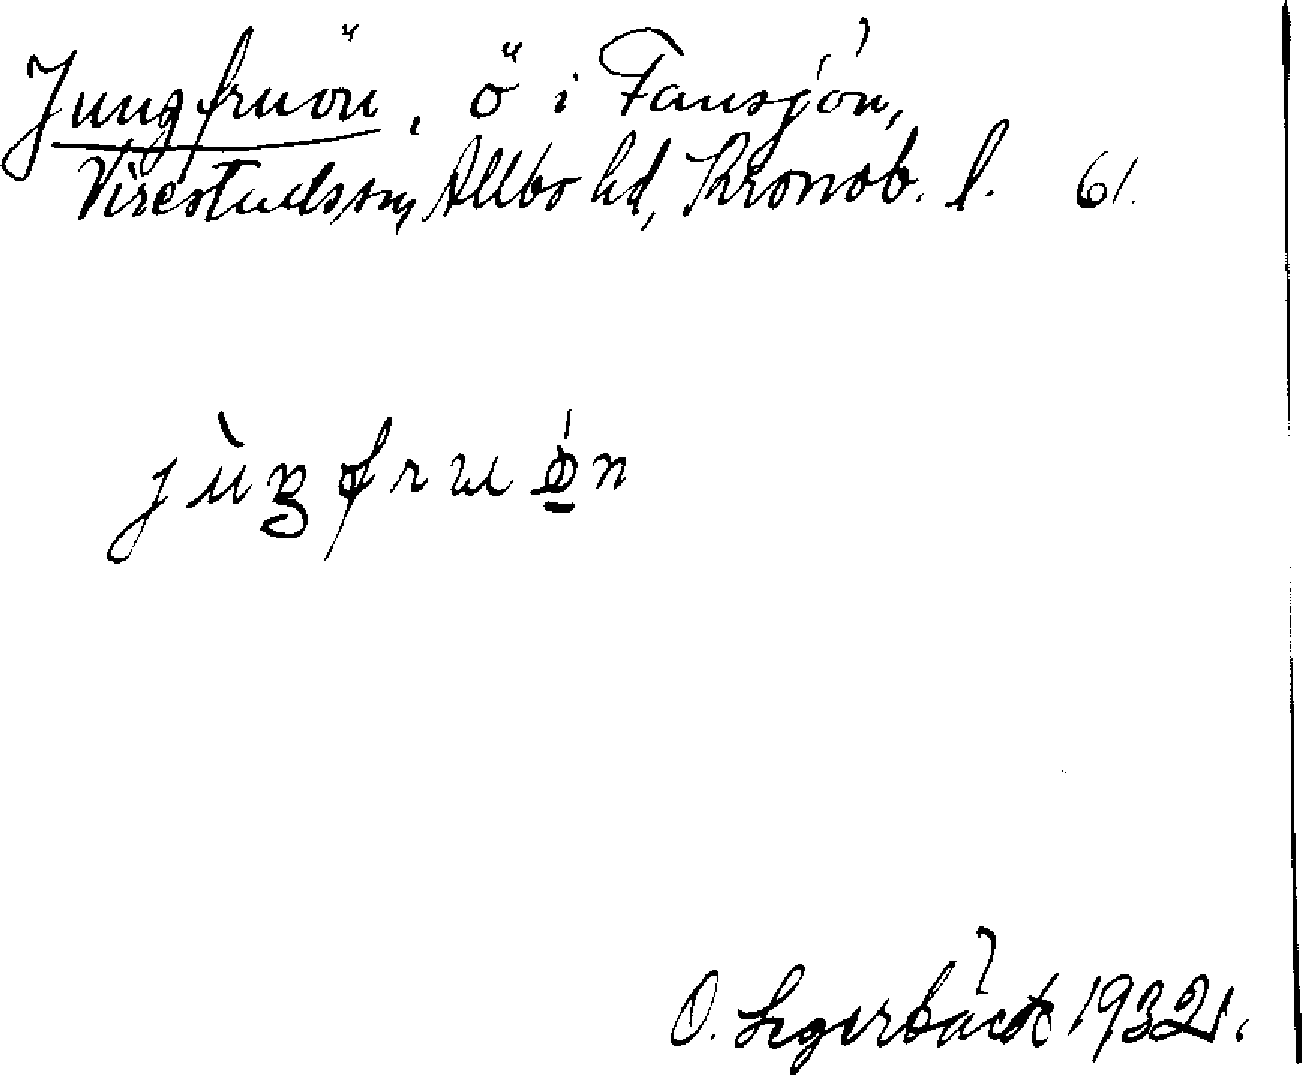 Jungfruön, ö i Fansjön,
Virestads sn, Allbo hd, Kronob. l. 61.
jùŋfruǿn
O. Segerbäck 1932.